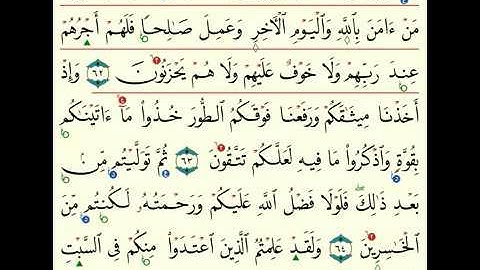 مَنْ ءَامَنَ بِٱللَّهِ وَٱلْيَوْمِ ٱلْأَخِرِ وَعَمِلَ صَٰلِحًا فَلَهُمْ أَجْرُهُمْ
عِندَ رَبِّهِمْ وَلَا خَوْفٌ عَلَيْهِمْ وَلَا هُمْ يَحْزَنُونَ ٦٢ وَإِذْ
أَخَذْنَا مِيثَٰقَكُمْ وَرَفَعْنَا فَوْقَكُمُ ٱلطُّورَ خُذُوا۟ مَآ ءَاتَيْنَٰكُم
بِقُوَّةٍ وَٱذْكُرُوا۟ مَا فِيهِ لَعَلَّكُمْ تَتَّقُونَ ٦٣ ثُمَّ تَوَلَّيْتُم مِّنۢ
بَعْدِ ذَٰلِكَ ۖ فَلَوْلَا فَضْلُ ٱللَّهِ عَلَيْكُمْ وَرَحْمَتُهُۥ لَكُنتُم مِّنَ
ٱلْخَٰسِرِينَ ٦٤ وَلَقَدْ عَلِمْتُمُ ٱلَّذِينَ ٱعْتَدَوْا۟ مِنكُمْ فِى ٱلسَّبْتِ